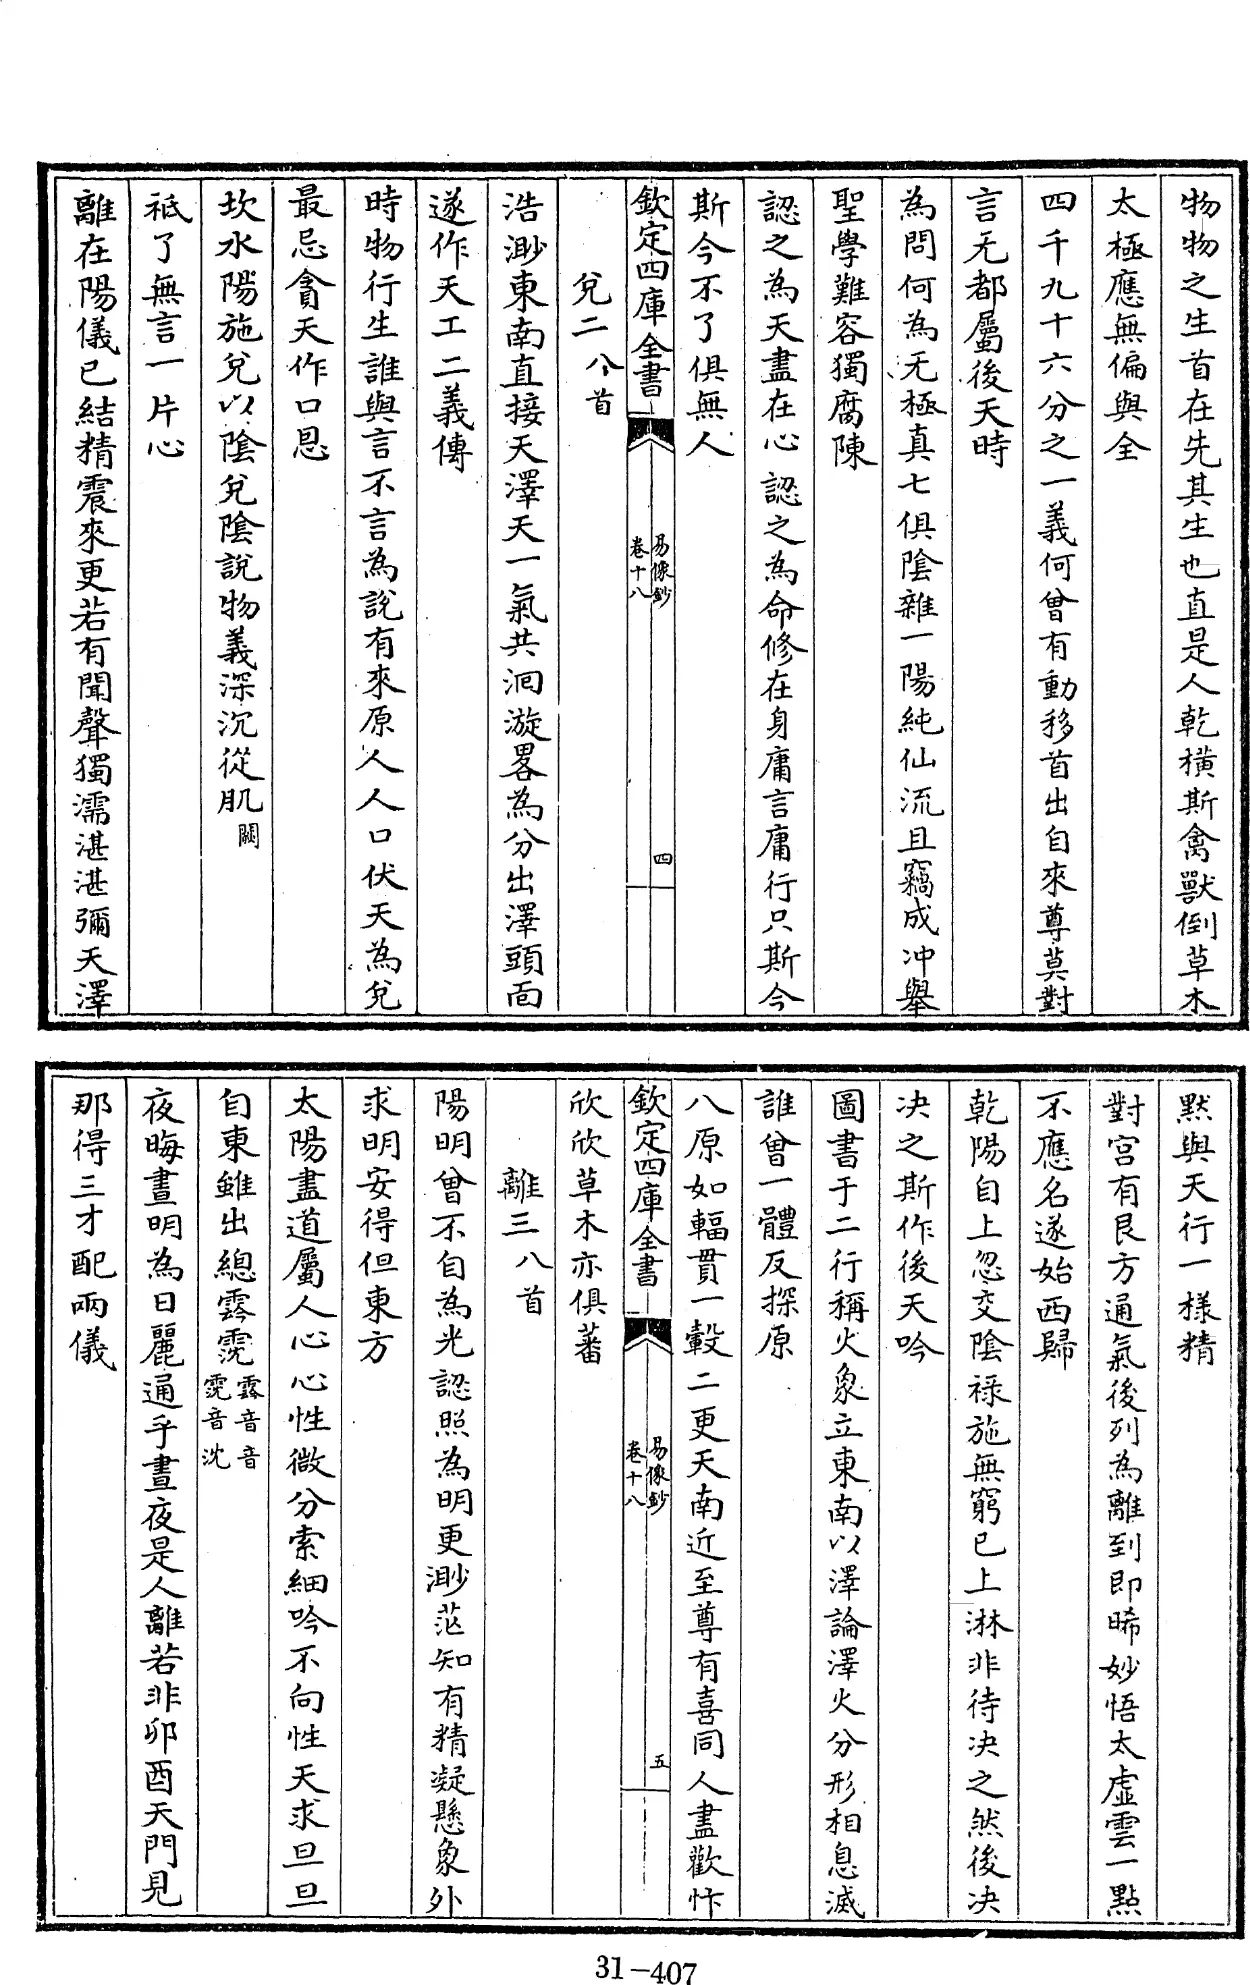 物物之生首在先其生也直是人乾橫斯禽獸倒草木
太極應無偏與全
四千九十六分之一義何曾有動移首出自來尊莫對
言无都屬後天時
為問何為无極真七俱陰雜一陽純仙流且竊成冲舉
聖學難容獨腐陳
認之為天盡在心認之為命修在身庸言庸行只斯今
斯今不了俱無人
欽定四庫全書
易像鈔
卷十八
四
兌二八首
浩渺東南直接天澤天一氣共洄漩畧為分出澤頭面
遂作天工二義傳
時物行生誰與言不言為說有來原人人口伏天為兌
最忌貪天作口恩
坎水陽施兌以陰兌陰說物義深沉從肌闕
祗了無言一片心
離在陽儀已結精震來更若有聞聲獨濡湛湛彌天澤
默與天行一様精
對宫有艮方通氣後列為離到即晞妙悟太虛雲一點
不應名遂始西歸
乾陽自上忽交陰禄施無窮已上淋非待决之然後决
决之斯作後天吟
圖書于二行稱火象立東南以澤論澤火分形相息滅
誰曾一體反探原
八原如輻貫一轂二更天南近至尊有喜同人盡歡忭
欣欣草木亦俱蕃
欽定四庫全書
易像鈔
卷十八
五
離三八首
陽明曾不自為光認照為明更渺茫知有精凝懸象外
求明安得但東方
太陽盡道屬人心心性微分索細吟不向性天求旦旦
自東雖出總霒霃霒音音霃音沈
夜晦晝明為日麗通乎晝夜是人離若非卯酉天門見
那得三才配兩儀
31-407